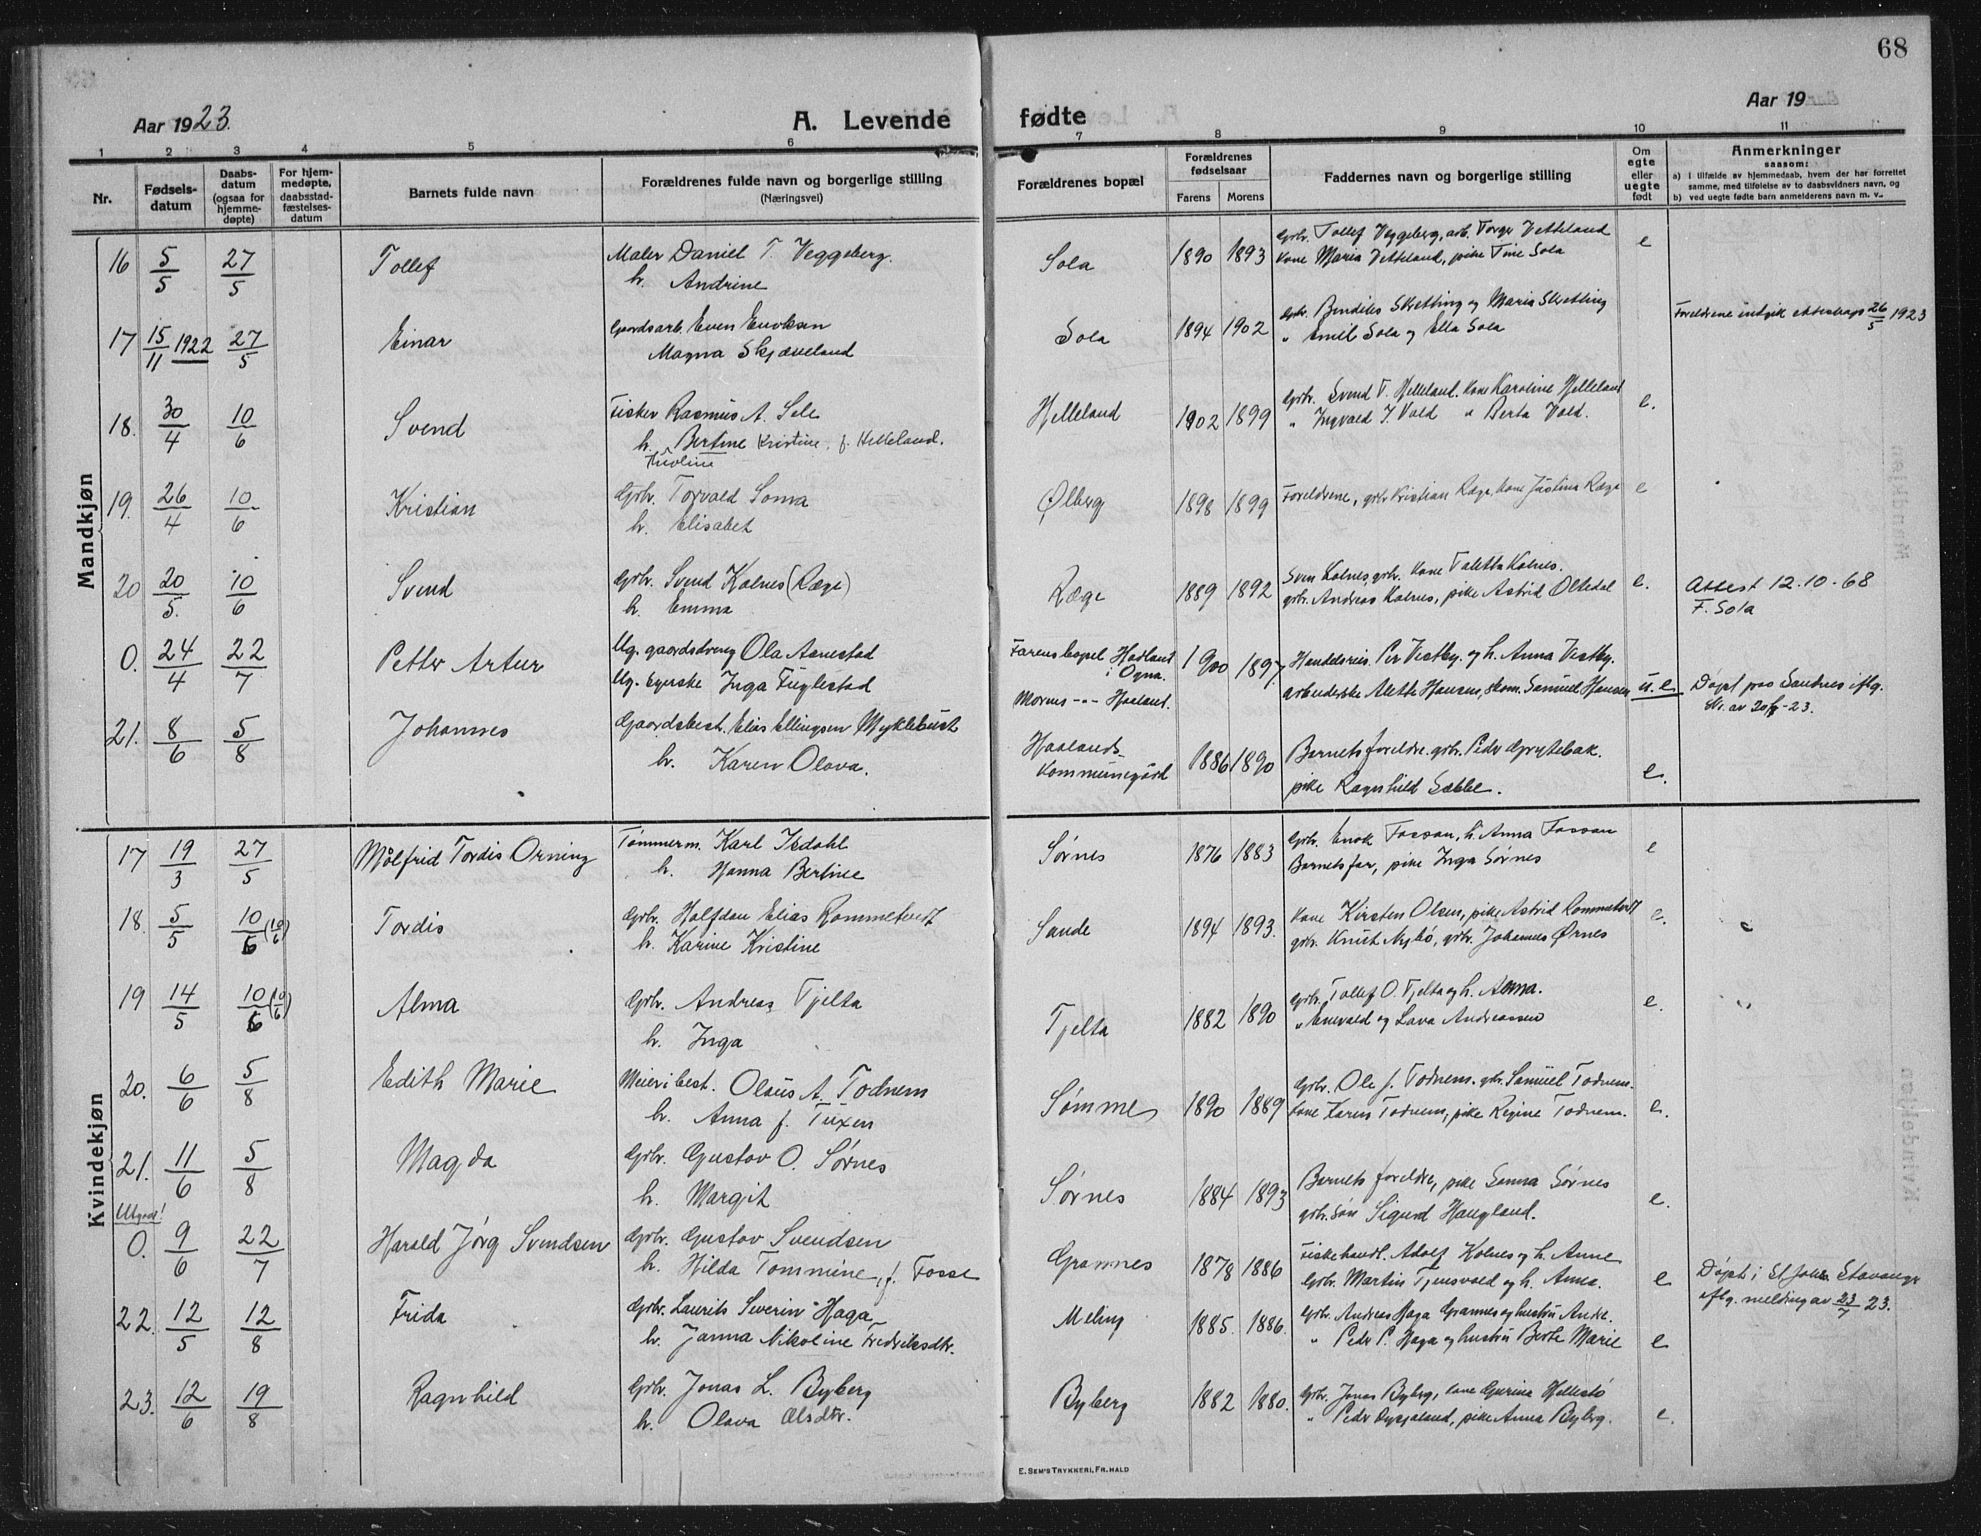 68
Aar 1923.
A. Levende fødte
Aar 19
1 2 3 4 5 6 7 8 9 10 11
Nr.
Fødsels-
datum
Daabs-
datum
(ogsaa for
hjemme-
døpte)
For hjem-
medøpte,
daabsstad-
fæstelses-
datum
Barnets fulde navn
Forældrenes fulde navn og borgerlige stilling
(Næringsvei)
Forældrenes bopæl
Forældrenes
fødselsaar
Farens Morens
Faddernes navn og borgerlige stilling
Om
egte
eller
uegte
født
Anmerkninger
saasom:
a) i tilfælde av hjemmedaab, hvem der har forrettet
samme, med tilføielse av to daabsvidners navn, og
b) ved uegte fødte barn anmelderens navn m. v.
Mandkjøn
16 5/5 27/5 Tollef
Maler Daniel T. Veggeberg.
h. Andrine
Sola 1890 1893
Grbr. Tollef Veggeberg, arb. Torger Vetteland
Kone Maria Vetteland, pike Tine Sola
e
17 15/11 1922 27/5 Einar
Gaardsarb. Even Enoksen
Magna Skjæveland
Sola 1894 1902
Grbr. Bendiks Skretting og Maria Skretting
" Emil Sola og Ella Sola
Foreldrene indgik ekteskap 26/5 1923
18. 30/4 10/6 Svend
Fisker Rasmus A. Sele
h. Bertine Kristine, f. Helleland.
Hjelleland 1902 1899
Grbr. Svend T. Helleland. Kone Karoline Helleland
" Ingvald J. Vold " Berta Vold.
e.
19. 26/4 10/6 Kristian
Grbr. Torvald Soma
h. Elisabet
Ølberg 1898 1899
Foreldrene, grbr. Kristian Ræge, kone Justina Ræge
e
20 20/5. 10/6 Svend
Grbr. Svend Kolnes (Ræge)
h. Emma
Ræge 1889 1892
Sven Kolnes, grbr. Kone Taletta Kolnes.
grbr. Andreas Kolnes, pike Astrid Oltedal
e.
Attest 12.10.68
F. Sola
0. 24/4 22/7 Petter Artur
Ug. gaardsdreng Ola Aanestad
Ug. syerske Inga Fuglestad
Farens bopel Hadland
i Ogna.
Morens --- Haaland.
1900 1897
Handelsreis. Per Vestby og h. Anna Vestby.
arbeiderske Alette Hansen, skom. Samuel Hansen
u. e.
Døpt paa Sandnes iflg.
21. 8/6 5/8 Johannes
Gaardsbest. Elias Ellingsen Myklebust
h. Karen Olava.
Haalands
Kommunegård
1886 1890
Barnets foreldre. grbr. Peder Grytebak.
pike Ragnhild Sæbbe.
e.
Kvindekjøn
17 19/3 27/5 Mølfrid Tordis Orning
Tømmerm. Karl Isdahl
h. Hanna Bertine
Sørnes 1876 1883
Grbr. Enok Fossan, h. Anna Fossan
Barnets far, pike Inga Sørnes
e
18. 5/5 10/6 (10/6) Tordis
Grbr. Halfdan Elias Rommetvedt
h. Karine Kristine
Sande 1894 1893.
Kone Kirsten Olsen, pike Astrid Rommetvedt
grbr. Knut Nybø, grbr. Johannes Ørnes
e.
19 14/5 10/6 (10/6) Alma
Grbr. Andreas Tjelta
h. Inga
Tjelta 1882 1890
Grbr. Tollef O. Tjelta og h. Alma.
" Enevald og Lava Andreassen
e.
20. 6/6 5/8 Edith Marie
Meieribest. Olaus A. Todnem
h. Anna f. Tuxen
Sømme 1890 1889
Grbr. Ole J. Todnem. grbr. Samuel Todnem.
kone Karen Todnem, pike Regine Todnem.
e.
21. 11/6 5/8 Magda
Grbr. Gustav O. Sørnes
h. Margit
Sørnes 1884 1893
Barnets foreldre, pike Sanna Sørnes
grbr. søn Sigurd Haugland.
e.
0. 9/6 22/7 Harald Jørg Svendsen
Grbr. Gustav Svendsen
h. Hilda Tommine, f. Fosse
Grannes 1878 1886
Fiskehandl. Adolf Kolnes og h. Anne
Grbr. Martin Tjensvold og h. Anna.
e
Døpt i St Johs. Stavanger
iflg. melding av 23/7 23.
22. 12/5 12/8 Frida
Grbr. Laurits Severin Haga
h. Janna Nikoline Fredriksdtr.
Meling 1885. 1886.
Grbr. Andreas Haga Grannes og hustru Andr.
" Peder P. Haga og hustru Berte Marie
e
23. 12/6 19/8 Ragnhild
Grbr. Jonas L. Byberg
h. Olava Olsdtr.
Byberg 1882 1880.
Grbr. Jonas Byberg, kone Gurina Hellestø
" Peder Dysjaland, pike Anna Byberg.
e.
E. SEM'S TRYKKERI, FR.HALD